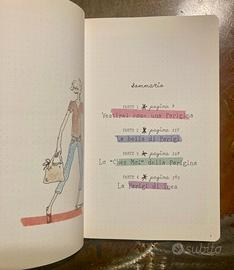 Sommario
PARTE 1 * pagina 9
Vestirsi come una Parigina
PARTE 2 * pagina
La bella di Parigi
PARTE 3 * pagina
Lo "Chez Moi" della Parigina
PARTE 4 * pagina
La Parigi di Ines
subito